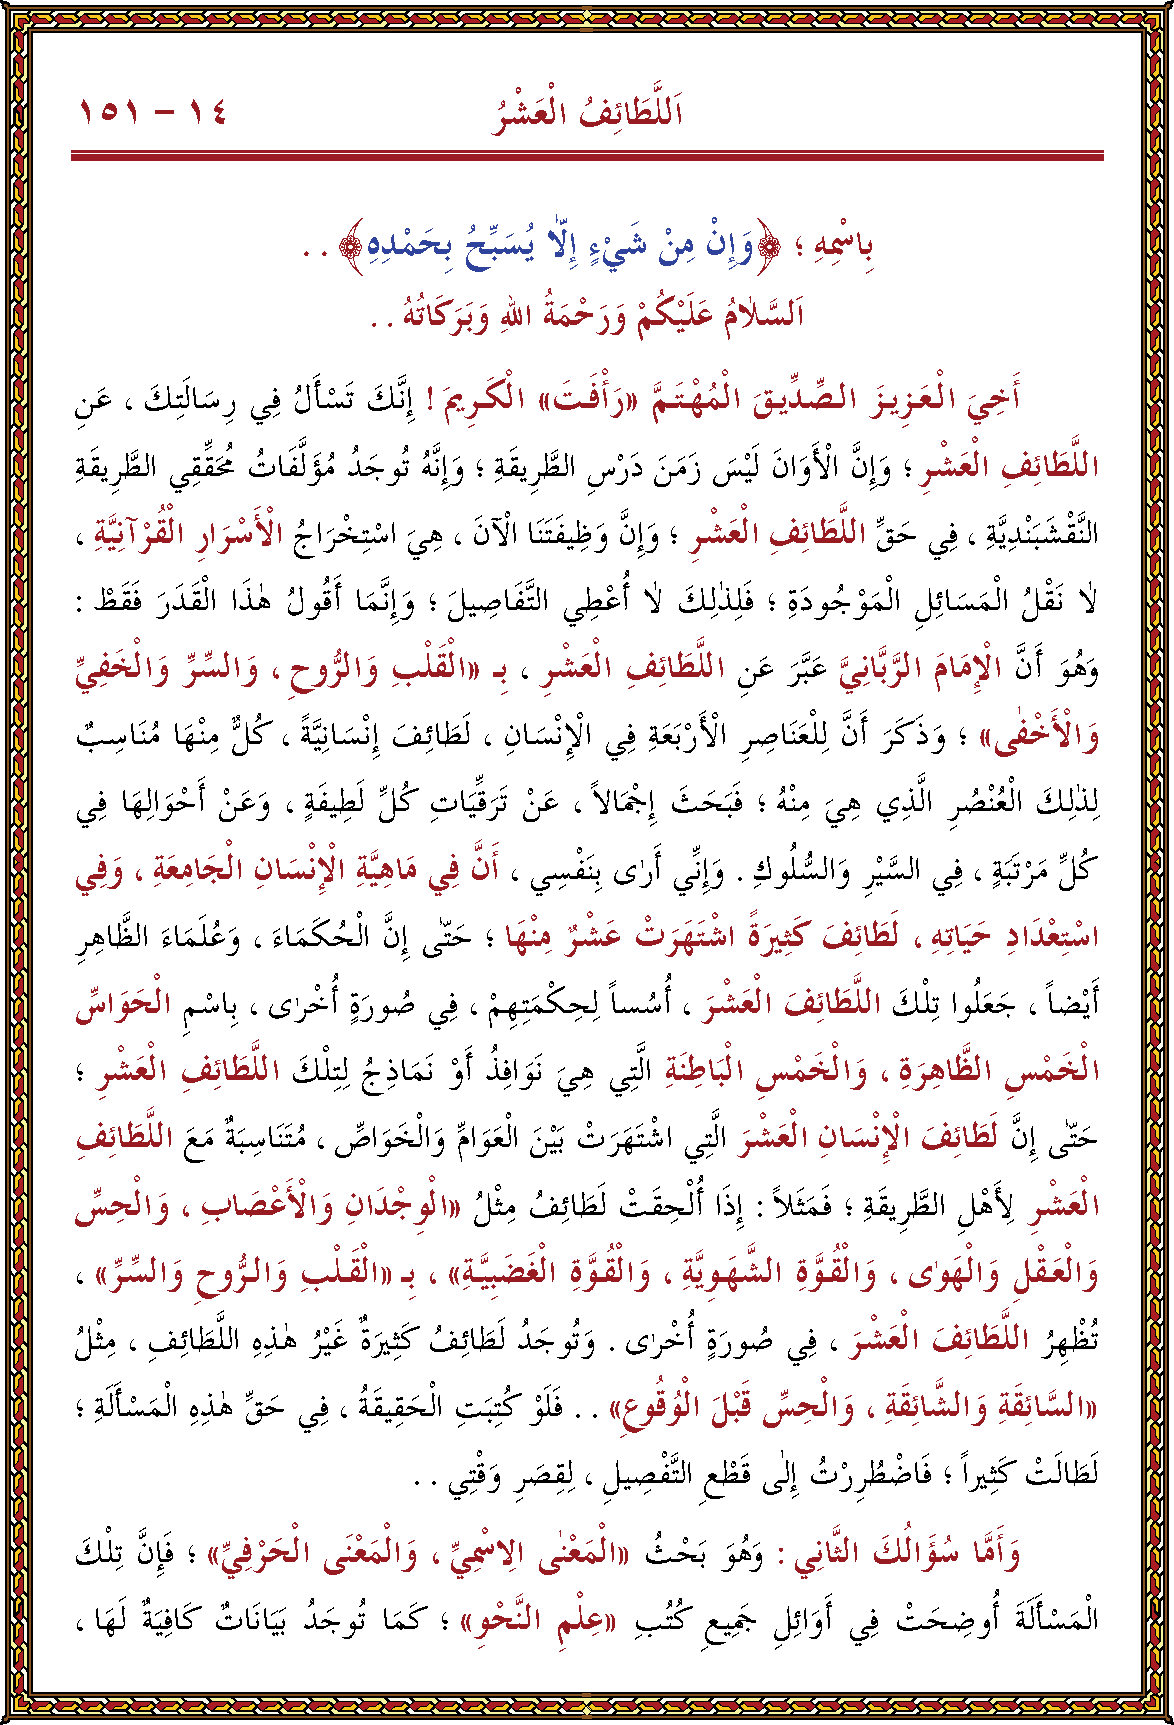 اَللَّطَائِفُ الْعَشْرُ ١٤ – ١٥١
بِاسْمِهِ ؛ ﴿وَإِنْ مِنْ شَيْءٍ إِلَّا يُسَبِّحُ بِحَمْدِهِ﴾ . .
اَلسَّلَامُ عَلَيْكُمْ وَرَحْمَةُ اللهِ وَبَرَكَاتُهُ . .
أَخِيَ الْعَزِيزَ الصِّدِّيقَ الْمُهْتَمَّ «رَأْفَتَ» الْكَرِيمَ ! إِنَّكَ تَسْأَلُ فِي رِسَالَتِكَ ، عَنِ
اللَّطَائِفِ الْعَشْرِ ؛ وَإِنَّ الْأَوَانَ لَيْسَ زَمَنَ دَرْسِ الطَّرِيقَةِ ؛ وَإِنَّهُ تُوجَدُ مُؤَلَّفَاتُ مُحَقِّقِي الطَّرِيقَةِ
النَّقْشَبَنْدِيَّةِ ، فِي حَقِّ اللَّطَائِفِ الْعَشْرِ ؛ وَإِنَّ وَظِيفَتَنَا الْآنَ ، هِيَ اسْتِخْرَاجُ الْأَسْرَارِ الْقُرْآنِيَّةِ ،
لَا نَقْلُ الْمَسَائِلِ الْمَوْجُودَةِ ؛ فَلِذٰلِكَ لَا أُعْطِي التَّفَاصِيلَ ؛ وَإِنَّمَا أَقُولُ هٰذَا الْقَدَرَ فَقَطْ :
وَهُوَ أَنَّ الْإِمَامَ الرَّبَّانِيَّ عَبَّرَ عَنِ اللَّطَائِفِ الْعَشْرِ ، بِـ «الْقَلْبِ وَالرُّوحِ ، وَالسِّرِّ وَالْخَفِيِّ
وَالْأَخْفٰى» ؛ وَذَكَرَ أَنَّ لِلْعَنَاصِرِ الْأَرْبَعَةِ فِي الْإِنْسَانِ ، لَطَائِفَ إِنْسَانِيَّةً ، كُلٌّ مِنْهَا مُنَاسِبٌ
لِذٰلِكَ الْعُنْصُرِ الَّذِي هِيَ مِنْهُ ؛ فَبَحَثَ إِجْمَالاً ، عَنْ تَرَقِّيَاتِ كُلِّ لَطِيفَةٍ ، وَعَنْ أَحْوَالِهَا فِي
كُلِّ مَرْتَبَةٍ ، فِي السَّيْرِ وَالسُّلُوكِ . وَإِنِّي أَرٰى بِنَفْسِي ، أَنَّ فِي مَاهِيَّةِ الْإِنْسَانِ الْجَامِعَةِ ، وَفِي
اسْتِعْدَادِ حَيَاتِهِ ، لَطَائِفَ كَثِيرَةً اشْتَهَرَتْ عَشْرٌ مِنْهَا ؛ حَتّٰى إِنَّ الْحُكَمَاءَ ، وَعُلَمَاءَ الظَّاهِرِ
أَيْضاً ، جَعَلُوا تِلْكَ اللَّطَائِفَ الْعَشْرَ ، أُسُساً لِحِكْمَتِهِمْ ، فِي صُورَةٍ أُخْرٰى ، بِاسْمِ الْحَوَاسِّ
الْخَمْسِ الظَّاهِرَةِ ، وَالْخَمْسِ الْبَاطِنَةِ الَّتِي هِيَ نَوَافِذُ أَوْ نَمَاذِجُ لِتِلْكَ اللَّطَائِفِ الْعَشْرِ ؛
حَتّٰى إِنَّ لَطَائِفَ الْإِنْسَانِ الْعَشْرَ الَّتِي اشْتَهَرَتْ بَيْنَ الْعَوَامِّ وَالْخَوَاصِّ ، مُتَنَاسِبَةٌ مَعَ اللَّطَائِفِ
الْعَشْرِ لِأَهْلِ الطَّرِيقَةِ ؛ فَمَثَلاً : إِذَا أُلْحِقَتْ لَطَائِفُ مِثْلُ «الْوِجْدَانِ وَالْأَعْصَابِ ، وَالْحِسِّ
وَالْعَقْلِ وَالْهَوٰى ، وَالْقُوَّةِ الشَّهَوِيَّةِ ، وَالْقُوَّةِ الْغَضَبِيَّةِ» ، بِـ «الْقَلْبِ وَالرُّوحِ وَالسِّرِّ» ،
تُظْهِرُ اللَّطَائِفَ الْعَشْرَ ، فِي صُورَةٍ أُخْرٰى . وَتُوجَدُ لَطَائِفُ كَثِيرَةٌ غَيْرُ هٰذِهِ اللَّطَائِفِ ، مِثْلُ
«السَّائِقَةِ وَالشَّائِقَةِ ، وَالْحِسِّ قَبْلَ الْوُقُوعِ» . . فَلَوْ كُتِبَتِ الْحَقِيقَةُ ، فِي حَقِّ هٰذِهِ الْمَسْأَلَةِ ؛
لَطَالَتْ كَثِيراً ؛ فَاضْطُرِرْتُ إِلٰى قَطْعِ التَّفْصِيلِ ، لِقِصَرِ وَقْتِي . .
وَأَمَّا سُؤَالُكَ الثَّانِي : وَهُوَ بَحْثُ «الْمَعْنٰى الِاسْمِيِّ ، وَالْمَعْنَى الْحَرْفِيِّ» ؛ فَإِنَّ تِلْكَ
الْمَسْأَلَةَ أُوضِحَتْ فِي أَوَائِلِ جَمِيعِ كُتُبِ «عِلْمِ النَّحْوِ» ؛ كَمَا تُوجَدُ بَيَانَاتٌ كَافِيَةٌ لَهَا ،